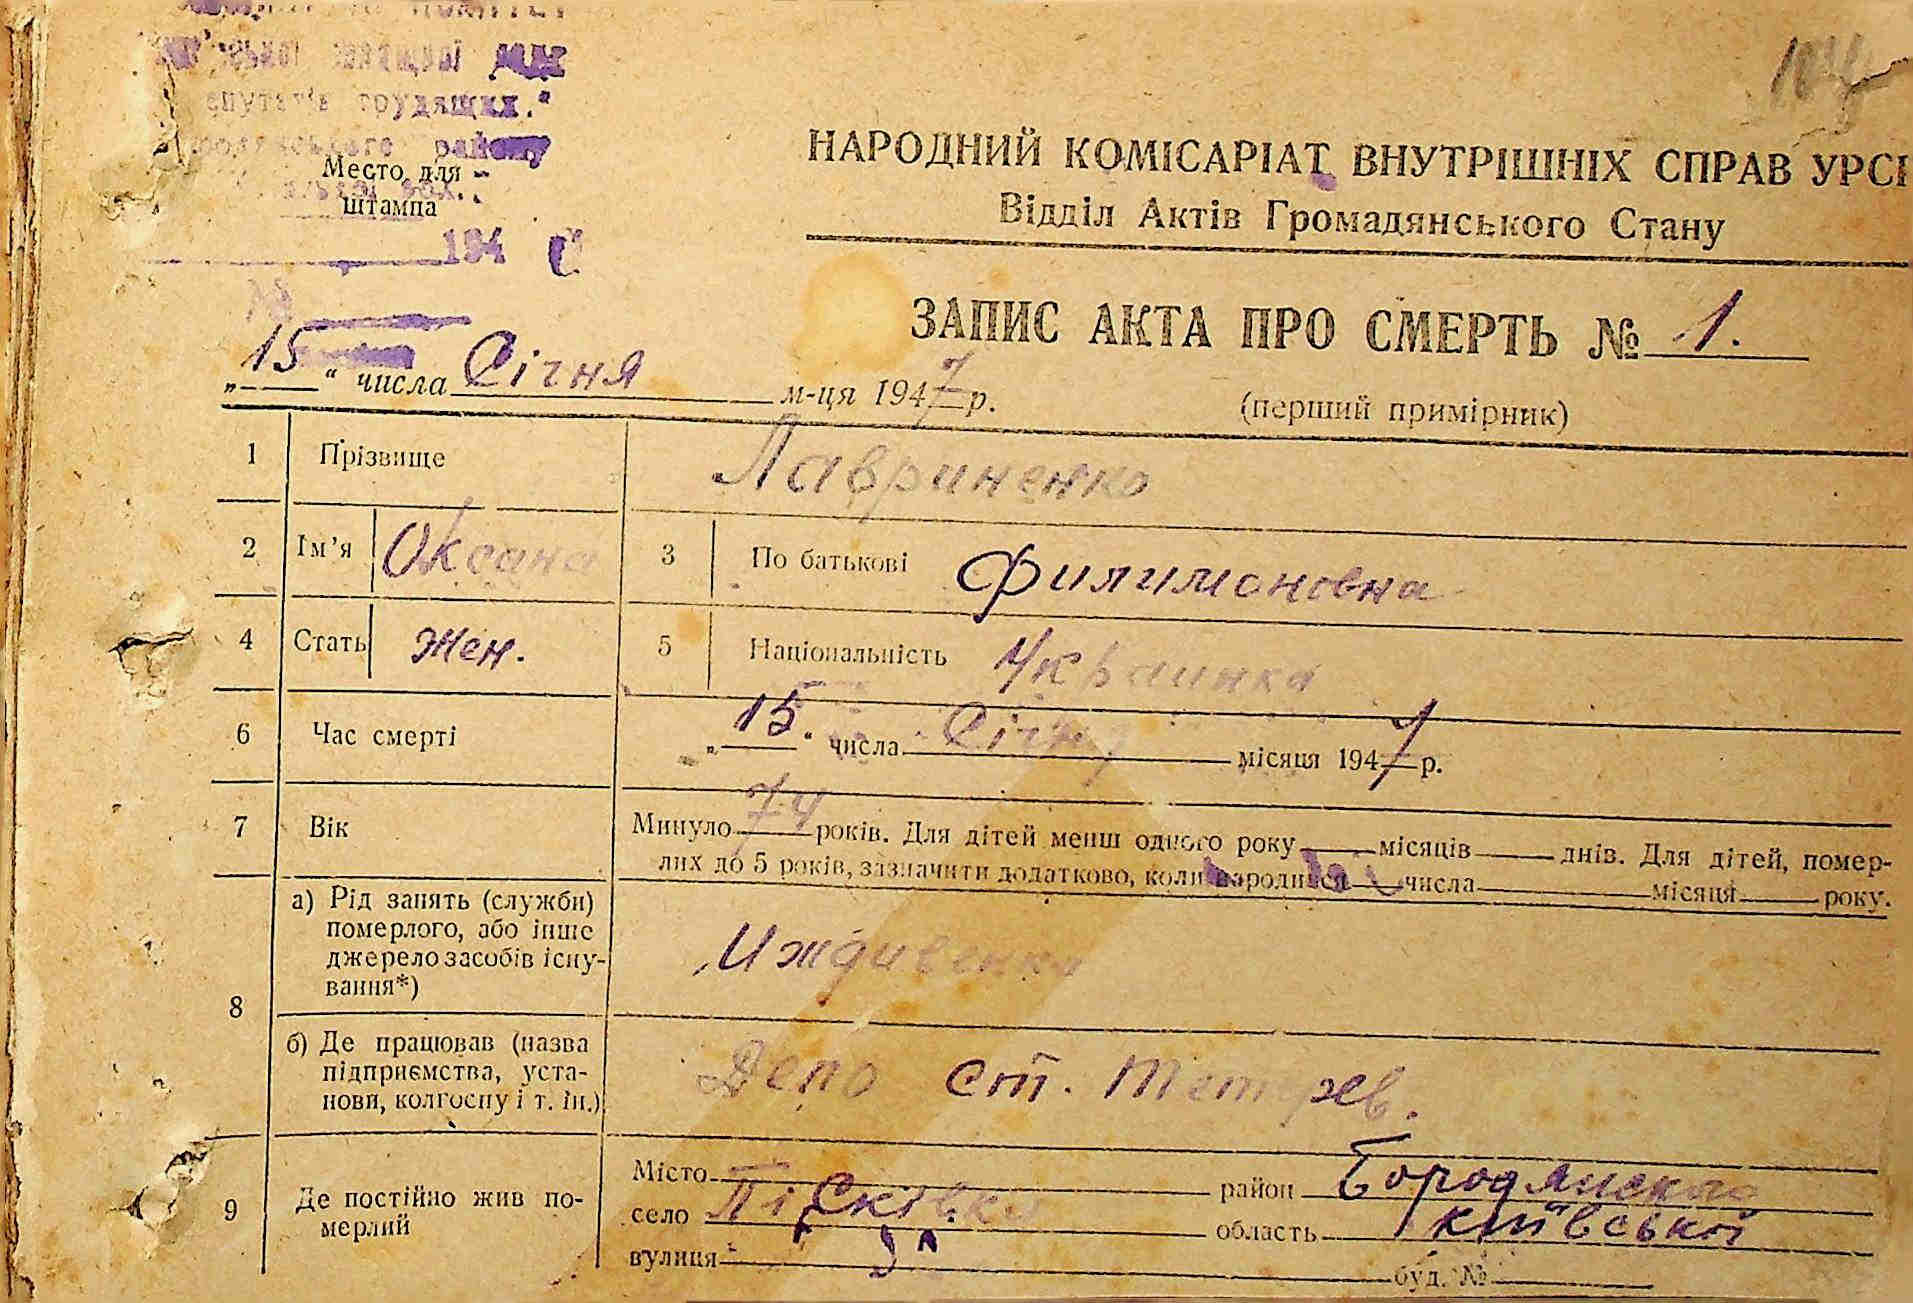 трудящих.
району
Место для
штампа
194
104
НАРОДНИЙ КОМІСАРІАТ ВНУТРІШНІХ СПРАВ УРСР
Відділ Актів Громадянського Стану
ЗАПИС АКТА ПРО СМЕРТЬ № 1.
„15“ числа Січня м-ця 1947 р.
(перший примірник)
1 Прізвище Лавриненко
2 Ім’я Оксана 3 По батькові Филимоновна
4 Стать Жен. 5 Національність Украинка
6 Час смерті „15.“ числа Січня місяця 1947 р.
7 Вік Минуло 74 років. Для дітей менш одного року місяців днів. Для дітей, помер-
лих до 5 років, зазначити додатково, коли народився числа місяця року.
8 а) Рід занять (служби)
померлого, або інше
джерело засобів існу-
вання*)
Иждивенка
б) Де працював (назва
підприємства, уста-
нови, колгоспу і т. ін.)
Депо ст. Тетерев.
9 Де постійно жив по-
мерлий
Місто район Бородянского
село Пісківка область Київській
вулиця буд. №